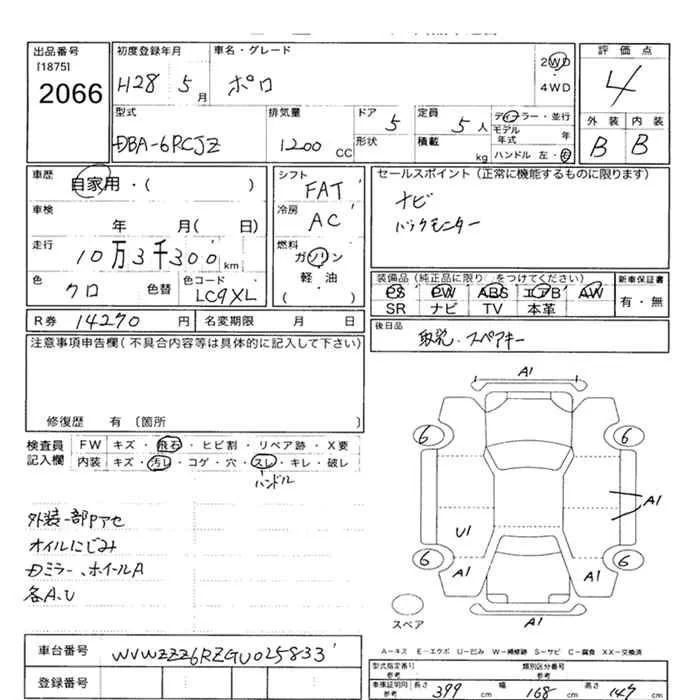 出品番号
[1875]
2066
初度登録年月
H28 5月
車名・グレード
ポロ
2WD
4WD
評価点
4
外装 内装
B B
型式
DBA-6RCJZ
排気量
1200 CC
ドア
5
形状
定員
5人
積載
kg
ディーラー・並行
モデル年式 年
ハンドル 左・右
車歴
自家用・( )
車検
年 月( 日)
走行
10万3千300km
色
クロ
色替
色コード
LC9XL
シフト
FAT
冷房
AC
燃料
ガソリン
軽油
( )
セールスポイント(正常に機能するものに限ります)
ナビ
バックモニター
装備品(純正品に限り をつけてください)
PS PW ABS エアB AW
SR ナビ TV 本革
新車保証書
有・無
R券 14270 円
名変期限 月 日
後日品
取説・スペアキー
注意事項申告欄(不具合内容等は具体的に記入して下さい)
修復歴 有 〔箇所 〕
検査員記入欄
FW キズ・飛石・ヒビ割・リペア跡・X要
内装 キズ・汚レ・コゲ・穴・スレ・キレ・破レ
ハンドル
外装一部Pアセ
オイルにじみ
Dミラー、ホイールA
各A、U
A1
6
6
A1
U1
6
6
A1
A1
A1
スペア
A-キズ E-エクボ U-凹み W-補修跡 S-サビ C-腐食 XX-交換済
車台番号
WVWZZZ6RZGU025833
登録番号
型式指定番号
参考
類別区分番号
参考
車庫証明用
参考
長さ 399 cm
幅 168 cm
高さ 147 cm